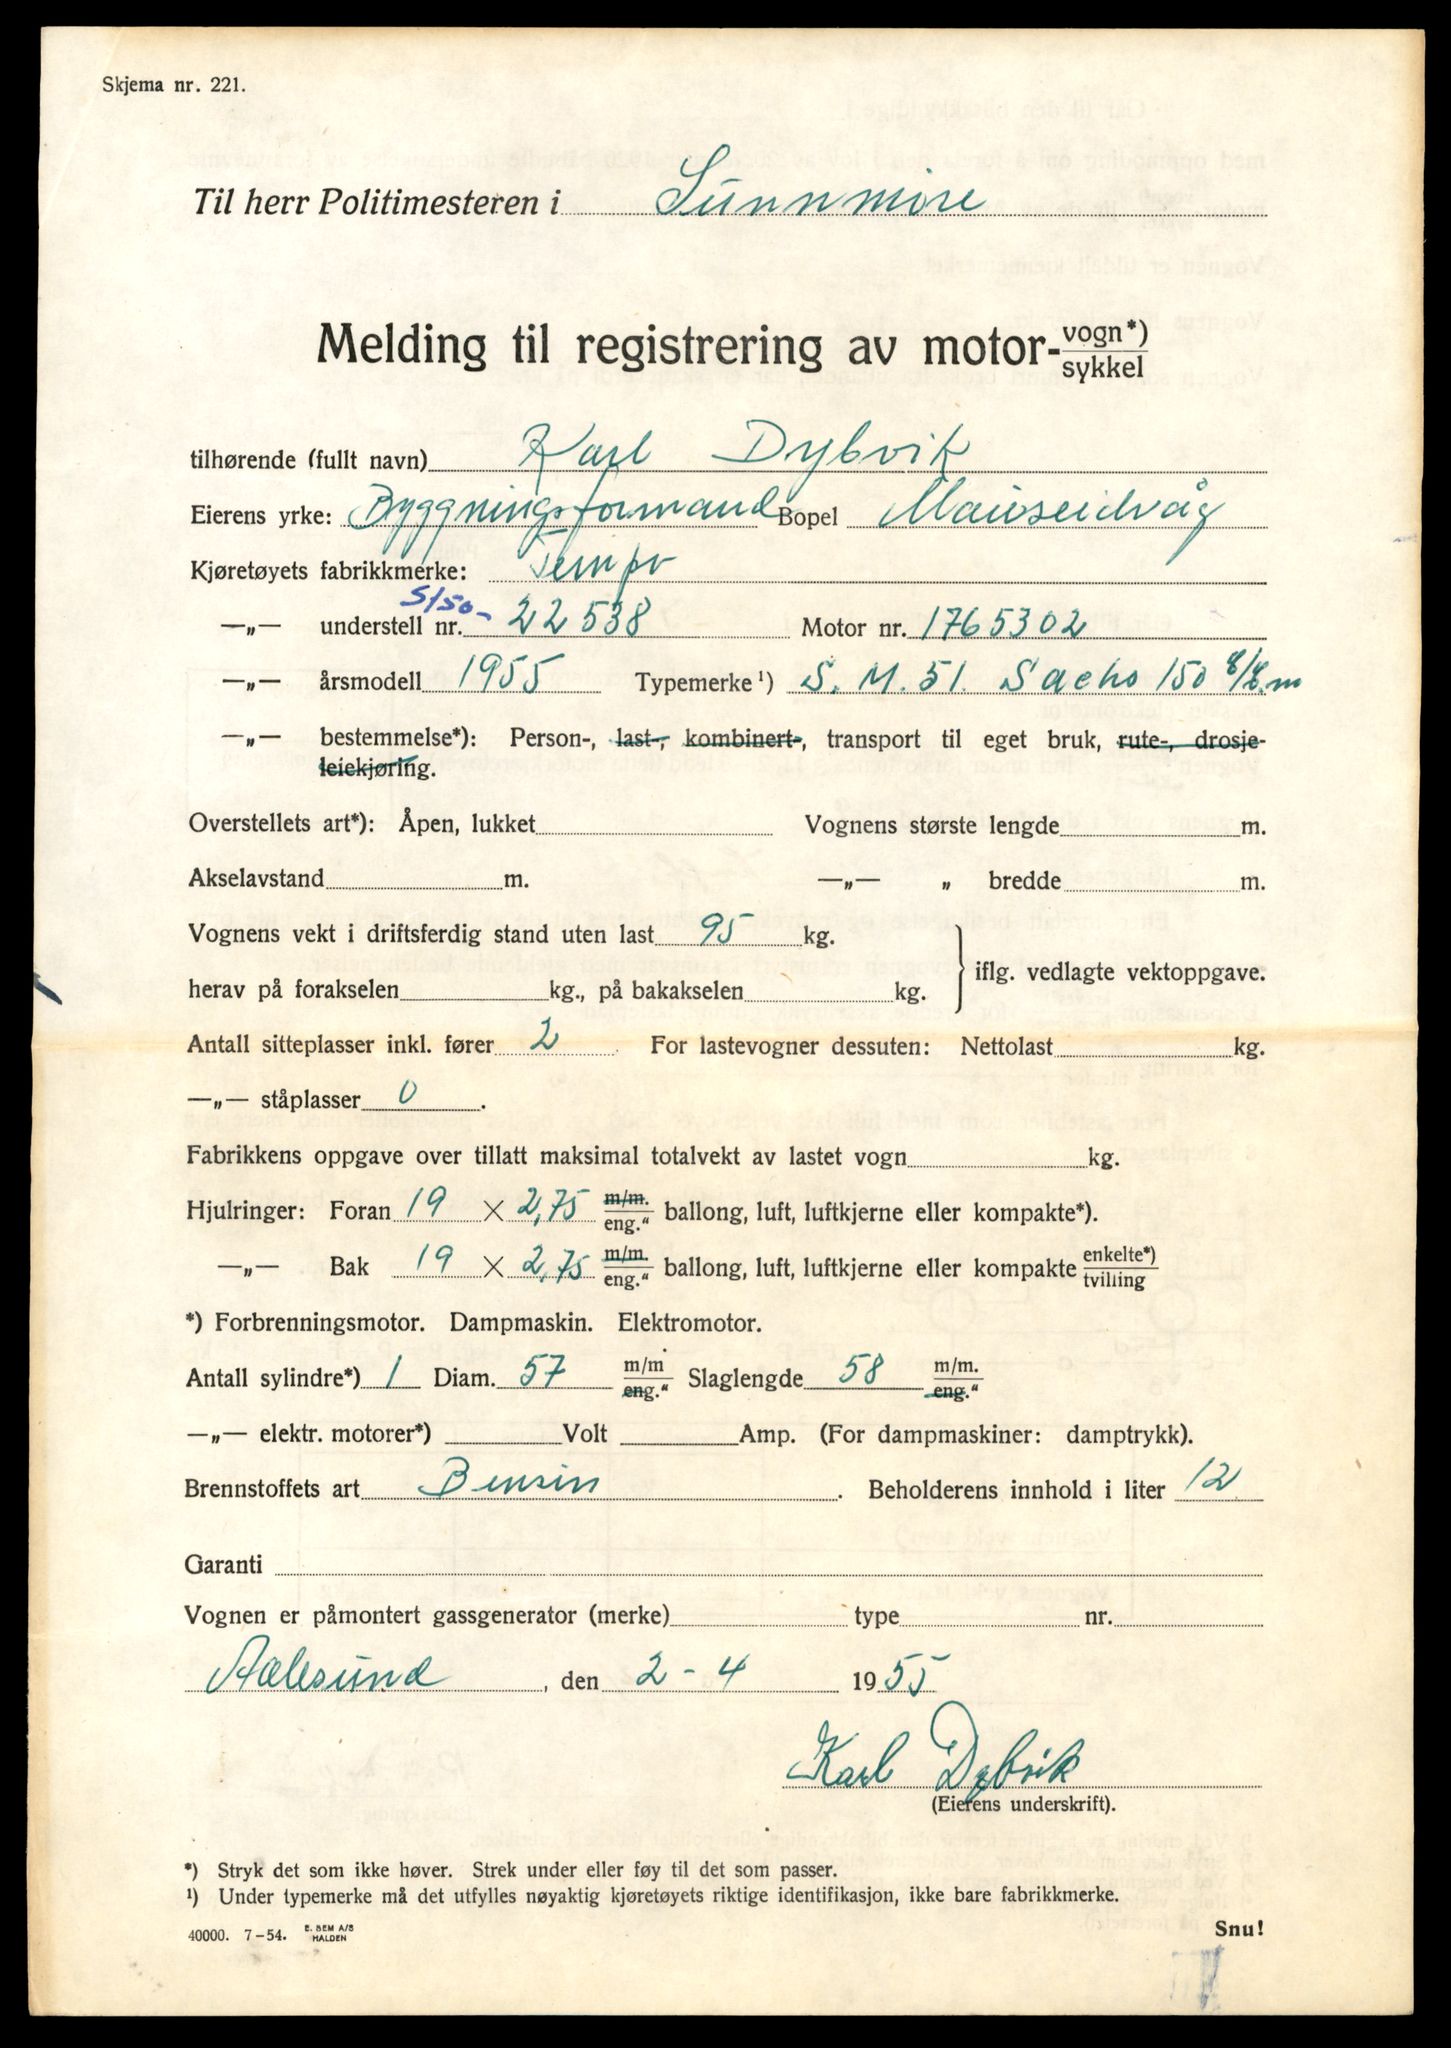 Skjema nr. 221.
Til herr Politimesteren i Sunnmøre
Melding til registrering av motor- vogn*) / sykkel
tilhørende (fullt navn) Karl Dybvik
Eierens yrke: Byggningsformand Bopel Mauseidvåg
Kjøretøyets fabrikkmerke: Tempo
—„— understell nr. S150- 22538 Motor nr. 1765302
—„— årsmodell 1955 Typemerke¹) S. M. 51. Sachs 150
—„— bestemmelse*): Person-, last-, kombinert-, transport til eget bruk, rute-, drosje-
leiekjøring.
Overstellets art*): Åpen, lukket Vognens største lengde m.
Akselavstand m. —„— „ bredde m.
Vognens vekt i driftsferdig stand uten last 95 kg.
iflg. vedlagte vektoppgave.
herav på forakselen kg., på bakakselen kg.
Antall sitteplasser inkl. fører 2 For lastevogner dessuten: Nettolast kg.
—„— ståplasser 0 .
Fabrikkens oppgave over tillatt maksimal totalvekt av lastet vogn kg.
Hjulringer: Foran 19 × 2,75 m/m. / eng.“ ballong, luft, luftkjerne eller kompakte*).
—„— Bak 19 × 2,75 m/m. / eng.“ ballong, luft, luftkjerne eller kompakte enkelte*) / tvilling
*) Forbrenningsmotor. Dampmaskin. Elektromotor.
Antall sylindre*) 1 Diam. 57 m/m / eng.“ Slaglengde 58 m/m. / eng.“
—„— elektr. motorer*) Volt Amp. (For dampmaskiner: damptrykk).
Brennstoffets art Bensin . Beholderens innhold i liter 12
Garanti
Vognen er påmontert gassgenerator (merke) type nr.
Aalesund, den 2 - 4 1955
Karl Dybvik
(Eierens underskrift).
*) Stryk det som ikke høver. Strek under eller føy til det som passer.
¹) Under typemerke må det utfylles nøyaktig kjøretøyets riktige identifikasjon, ikke bare fabrikkmerke.
40000. 7-54. E. SEM A/S
HALDEN
Snu!